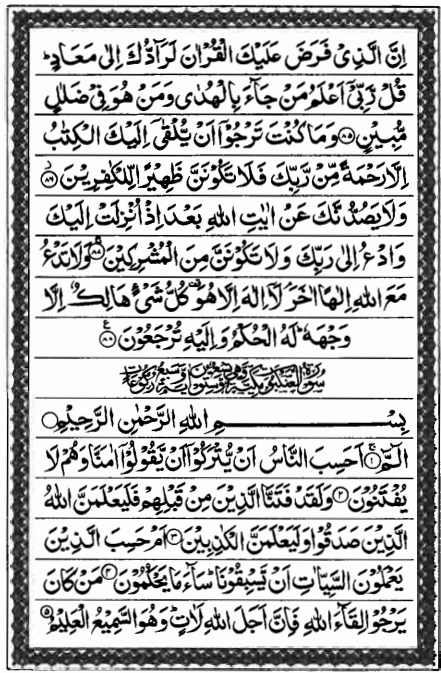 اِنَّ الَّذِیْ فَرَضَ عَلَیْكَ الْقُرْاٰنَ لَرَآدُّكَ اِلٰی مَعَادٍ ؕ
قُلْ رَّبِّیْۤ اَعْلَمُ مَنْ جَآءَ بِالْهُدٰی وَمَنْ هُوَ فِیْ ضَلٰلٍ
مُّبِیْنٍ ﴿۸۵﴾ وَمَا كُنْتَ تَرْجُوْۤا اَنْ یُّلْقٰۤی اِلَیْكَ الْكِتٰبُ
اِلَّا رَحْمَةً مِّنْ رَّبِّكَ فَلَا تَكُوْنَنَّ ظَهِیْرًا لِّلْكٰفِرِیْنَ ﴿۸۶﴾
وَلَا یَصُدُّنَّكَ عَنْ اٰیٰتِ اللّٰهِ بَعْدَ اِذْ اُنْزِلَتْ اِلَیْكَ
وَادْعُ اِلٰی رَبِّكَ وَلَا تَكُوْنَنَّ مِنَ الْمُشْرِكِیْنَ ﴿۸۷﴾ وَلَا تَدْعُ
مَعَ اللّٰهِ اِلٰهًا اٰخَرَ ۘ لَاۤ اِلٰهَ اِلَّا هُوَ ۟ كُلُّ شَیْءٍ هَالِكٌ اِلَّا
وَجْهَهٗ ؕ لَهُ الْحُكْمُ وَاِلَیْهِ تُرْجَعُوْنَ ﴿۸۸﴾
سُوْرَةُ الْعَنْكَبُوْتِ مَكِّیَّةٌ وَّهِیَ
بِسْمِ اللّٰهِ الرَّحْمٰنِ الرَّحِیْمِ
الٓمّٓ ﴿۱﴾ اَحَسِبَ النَّاسُ اَنْ یُّتْرَكُوْۤا اَنْ یَّقُوْلُوْۤا اٰمَنَّا وَهُمْ لَا
یُفْتَنُوْنَ ﴿۲﴾ وَلَقَدْ فَتَنَّا الَّذِیْنَ مِنْ قَبْلِهِمْ فَلَیَعْلَمَنَّ اللّٰهُ
الَّذِیْنَ صَدَقُوْا وَلَیَعْلَمَنَّ الْكٰذِبِیْنَ ﴿۳﴾ اَمْ حَسِبَ الَّذِیْنَ
یَعْمَلُوْنَ السَّیِّاٰتِ اَنْ یَّسْبِقُوْنَا ؕ سَآءَ مَا یَحْكُمُوْنَ ﴿۴﴾ مَنْ كَانَ
یَرْجُوْا لِقَآءَ اللّٰهِ فَاِنَّ اَجَلَ اللّٰهِ لَاٰتٍ ؕ وَهُوَ السَّمِیْعُ الْعَلِیْمُ ﴿۵﴾